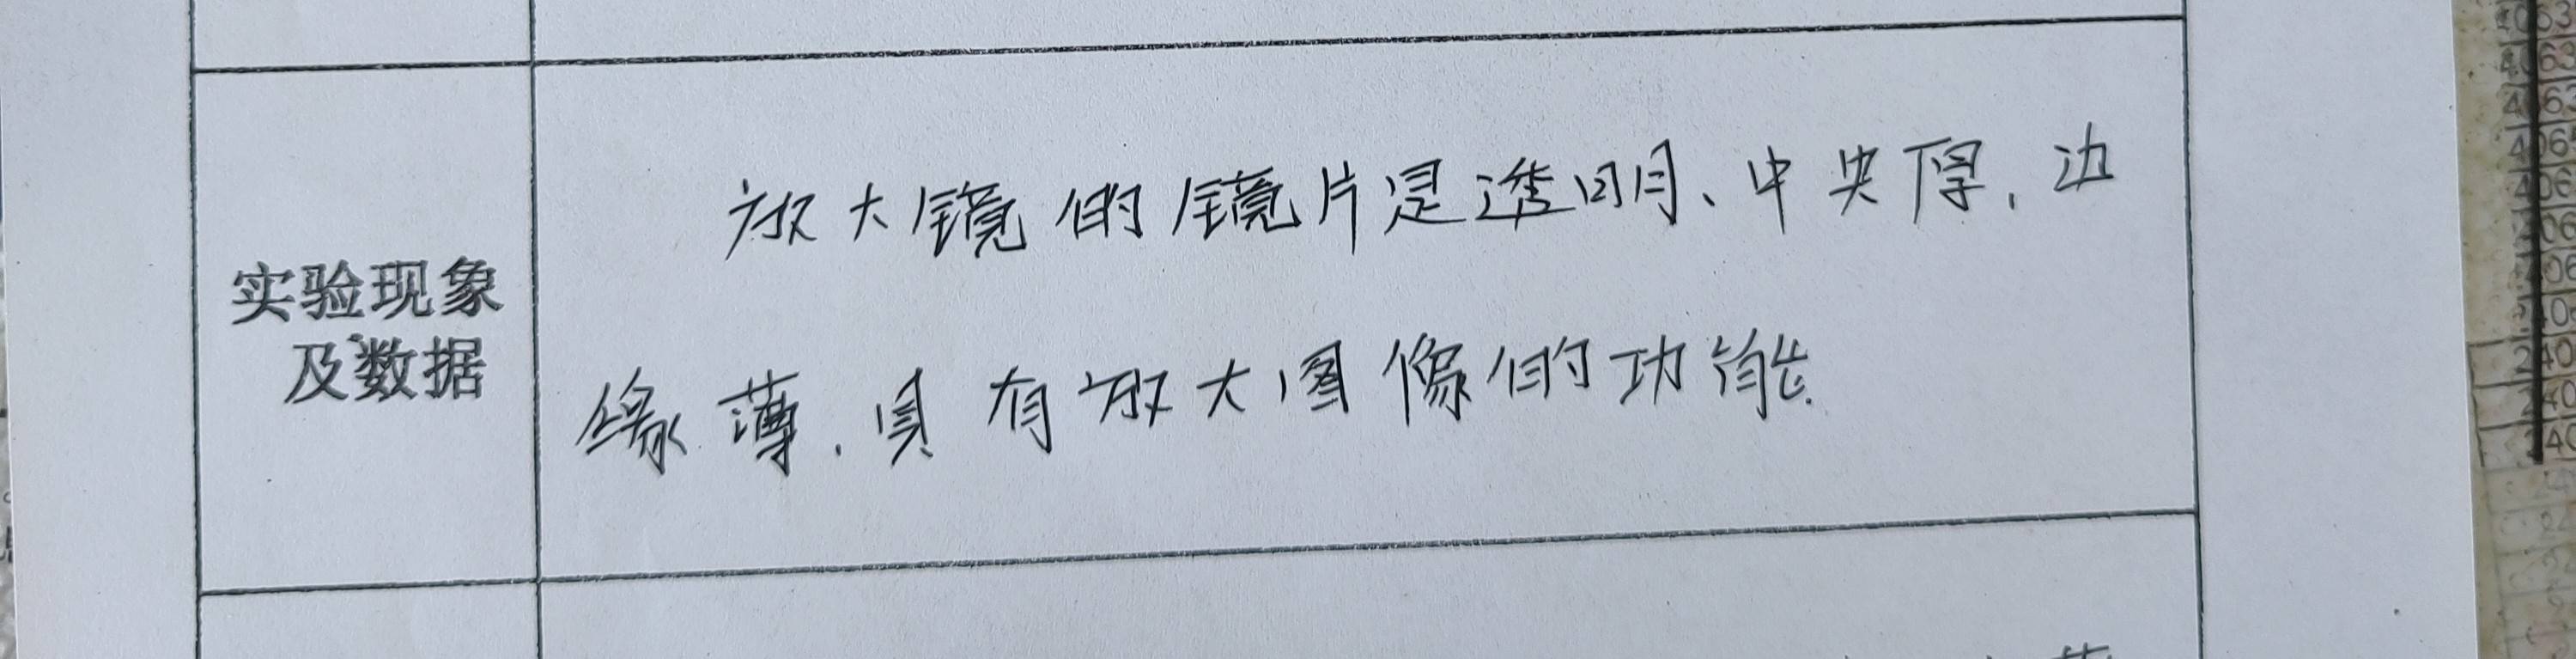 实验现象
及数据
放大镜的镜片是透明、中央厚，边
缘薄.具有放大图像的功能.